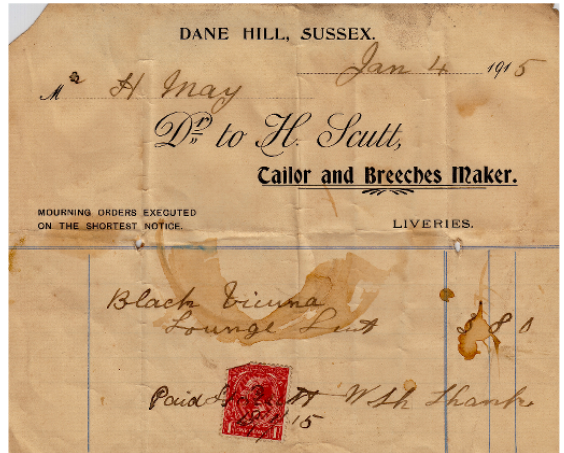 DANE HILL, SUSSEX.
Jan 4 1915
Mr H May
Dr to H. Scutt,
Tailor and Breeches Maker.
MOURNING ORDERS EXECUTED
ON THE SHORTEST NOTICE.
LIVERIES.
Black Vicuna
Lounge Suit 8 0
Paid H. Scutt With Thanks
15